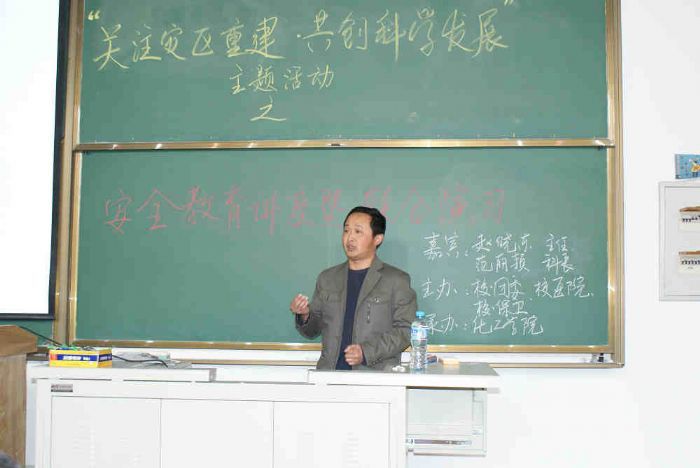 “关注灾区重建·共创科学发展”
主题活动
之
安全教育讲座暨 综合演习
嘉宾：赵晓东 主任
范丽颖 科长
主办：校团委 校医院
校保卫
承办：化工学院